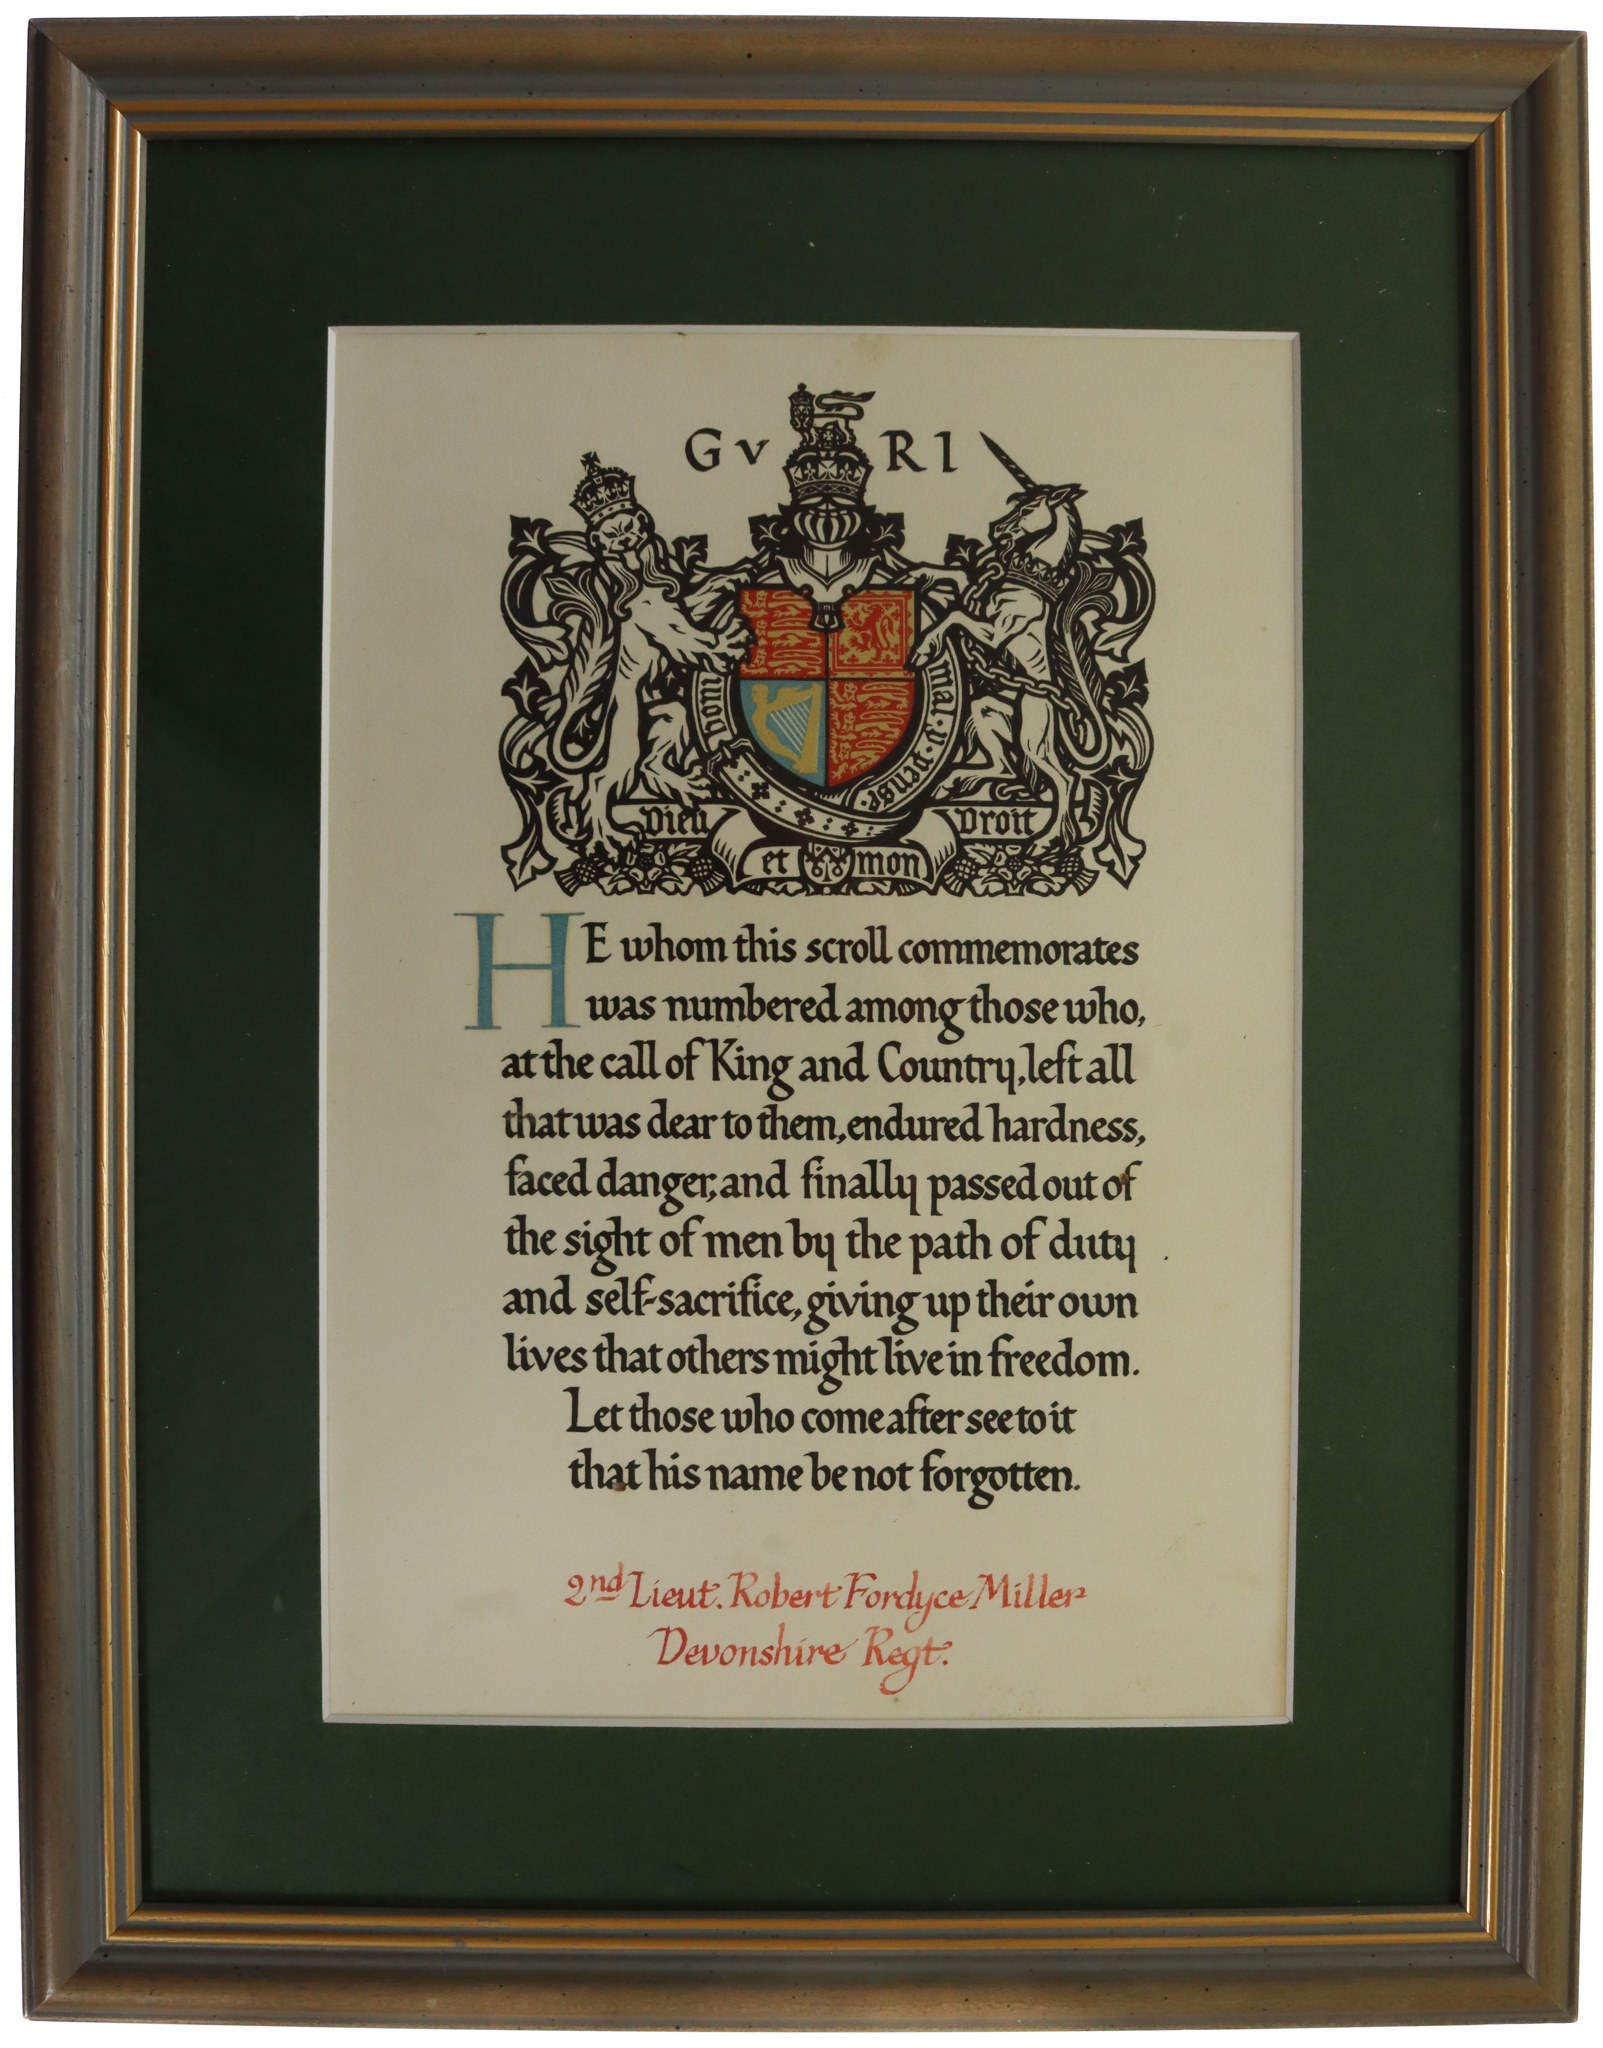 G V R I
honi
mal·y·pense·
Dieu
Droit
et mon
HE whom this scroll commemorates
was numbered among those who,
at the call of King and Country, left all
that was dear to them, endured hardness,
faced danger, and finally passed out of
the sight of men by the path of duty
and self-sacrifice, giving up their own
lives that others might live in freedom.
Let those who come after see to it
that his name be not forgotten.
2nd Lieut. Robert Fordyce Miller
Devonshire Regt.